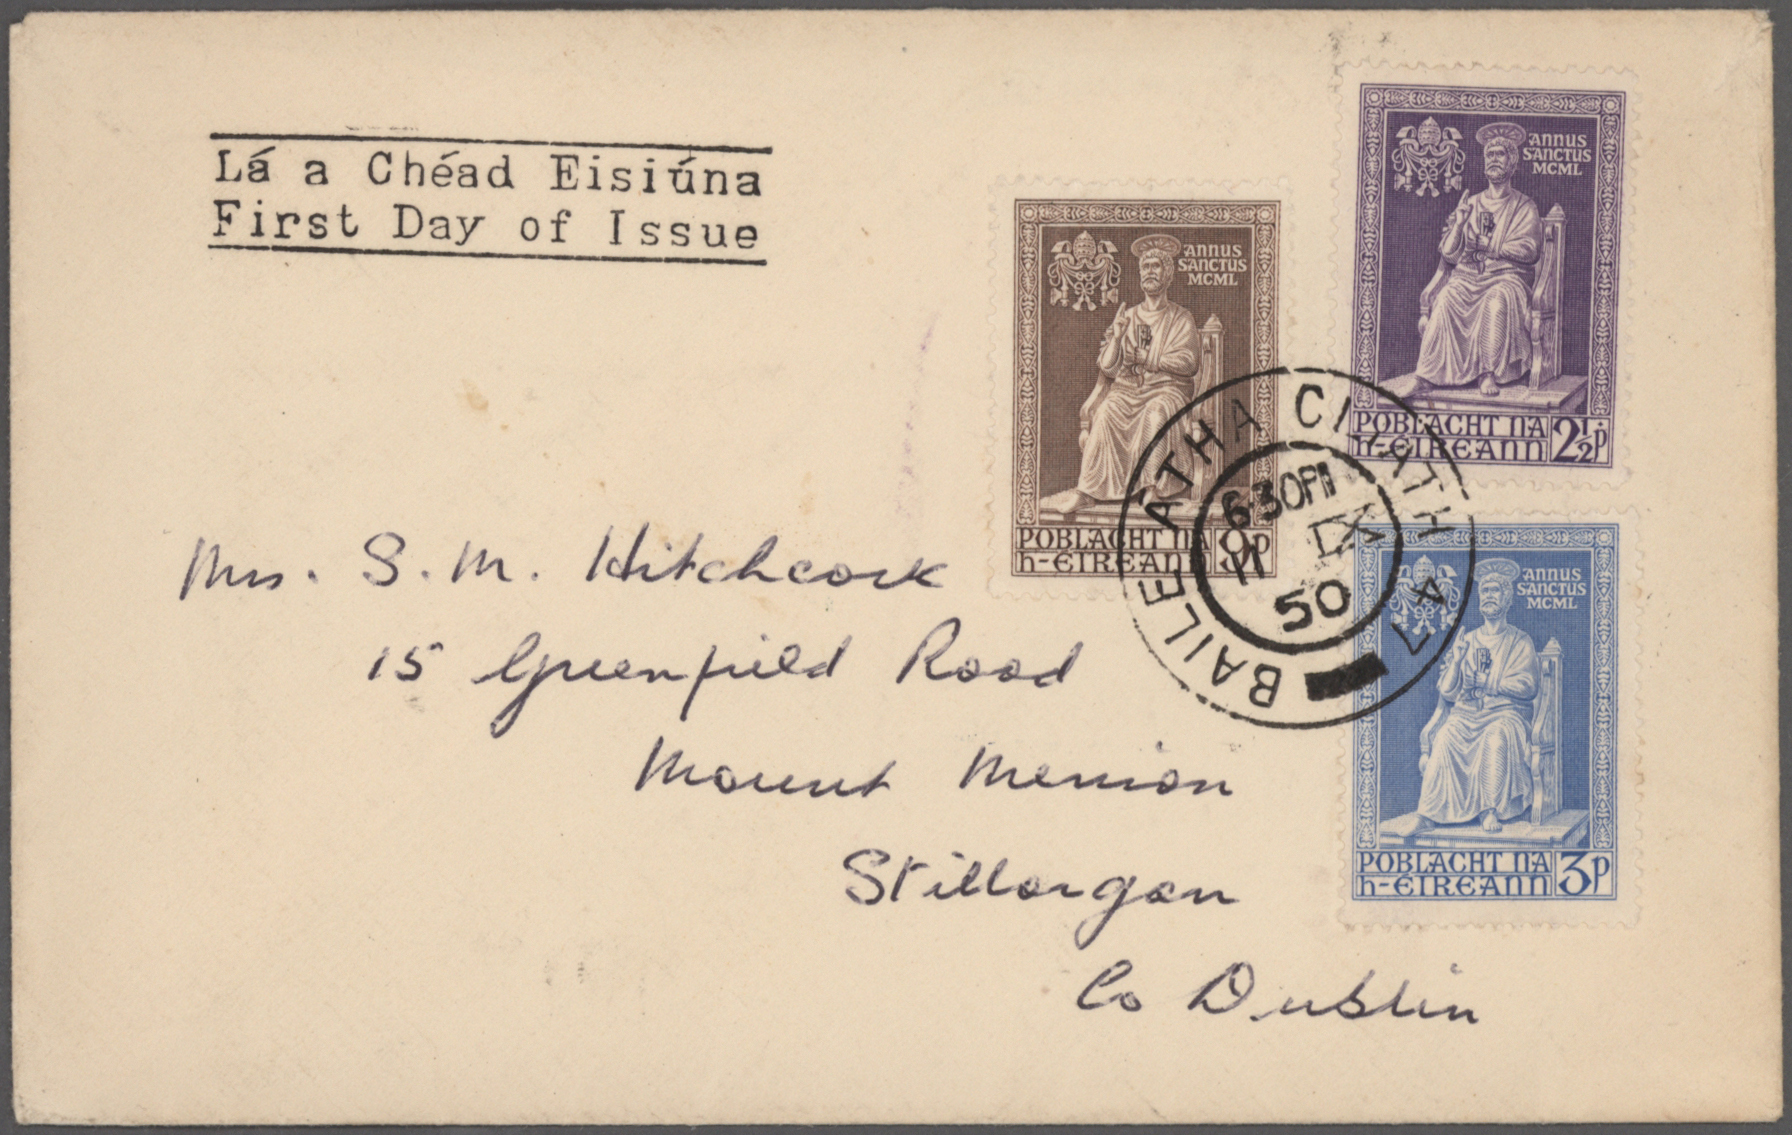 Lá a Chéad Eisiúna
First Day of Issue
ANNUS
SANCTUS
MCML
POBLACHT NA
h-ÉIREANN 9p
ANNUS
SANCTUS
MCML
POBLACHT NA
h-ÉIREANN 2½p
ANNUS
SANCTUS
MCML
POBLACHT NA
h-ÉIREANN 3p
BAILE ÁTHA CLIATH
6·30PM
11 IX
50
Mrs. S. M. Hitchcock
15 Greenfield Road
Mount Merrion
Stillorgan
Co Dublin